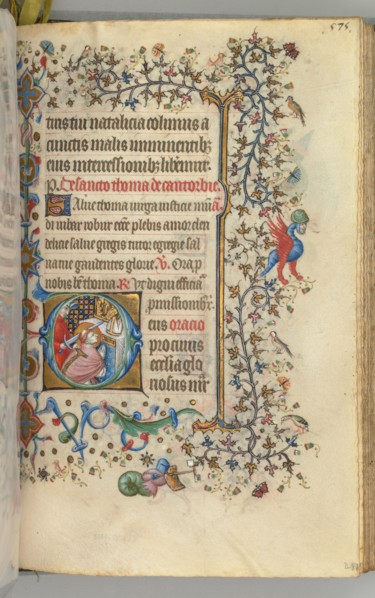 575.
tins tui natalicia colimus a
cunctis malis imminentib;
eius intercessionib; liberemur.
De sancto thoma de cantorbie.
Salue thoma uirga iusticie mu
di iubar robur ecce plebis amor cleri
delicie salue gregis tutor egregie sal
ua tue gaudentes glorie. V. Ora p
nobis bte thoma. R. Vt digni efficia
pmissionibz.
eus oracio
pro cuius
ecclesia glo
riosus